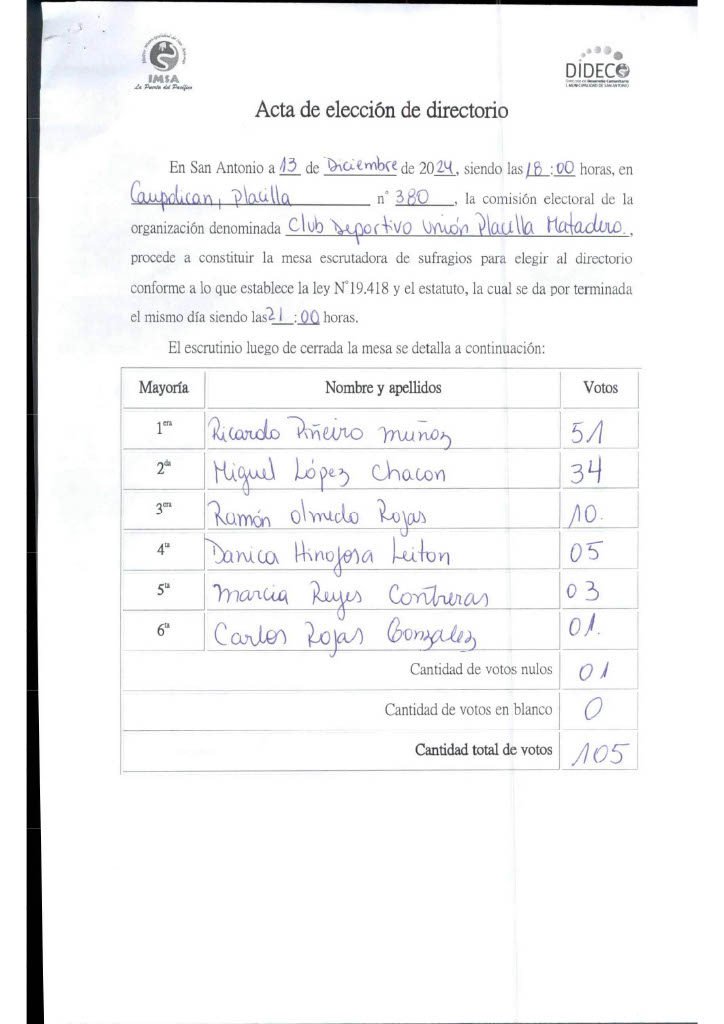 IMSA
La Puerta del Pacífico
DIDECO
Acta de elección de directorio
En San Antonio a 13 de Diciembre de 2024, siendo las 18:00 horas, en
Caupolican, Placilla n° 380, la comisión electoral de la
organización denominada Club Deportivo Unión Placilla Matadero.,
procede a constituir la mesa escrutadora de sufragios para elegir al directorio
conforme a lo que establece la ley N°19.418 y el estatuto, la cual se da por terminada
el mismo día siendo las 21:00 horas.
El escrutinio luego de cerrada la mesa se detalla a continuación:
Mayoría Nombre y apellidos Votos
1era Ricardo Piñeiro Muñoz 51
2da Miguel López Chacon 34
3era Ramón Olmedo Rojas 10.
4ta Danica Hinojosa Leiton 05
5ta Marcia Reyes Contreras 03
6ta Carlos Rojas Gonzalez 01.
Cantidad de votos nulos 01
Cantidad de votos en blanco 0
Cantidad total de votos 105